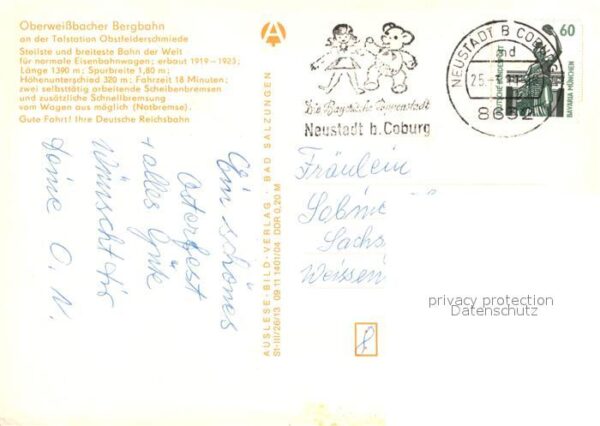 Oberweißbacher Bergbahn
an der Talstation Obstfelderschmiede
Steilste und breiteste Bahn der Welt
für normale Eisenbahnwagen; erbaut 1919-1923;
Länge 1390 m; Spurbreite 1,80 m;
Höhenunterschied 320 m; Fahrzeit 18 Minuten;
zwei selbsttätig arbeitende Scheibenbremsen
und zusätzliche Schnellbremsung
vom Wagen aus möglich (Notbremse).
Gute Fahrt! Ihre Deutsche Reichsbahn
Ein schönes
Osterfest
+ alles Gute
Wünscht dir
deine O. N.
AUSLESE-BILD-VERLAG · BAD SALZUNGEN
St-III/26/13 09 11 1401/04 DDR 0,20 M
A
Die Bayerische Puppenstadt
Neustadt b. Coburg
NEUSTADT B COBURG
25.
8632
60
DEUTSCHE BUNDESPOST
BAVARIA MÜNCHEN
Fräulein
Sabine
Sachs
Weissen
privacy protection
Datenschutz